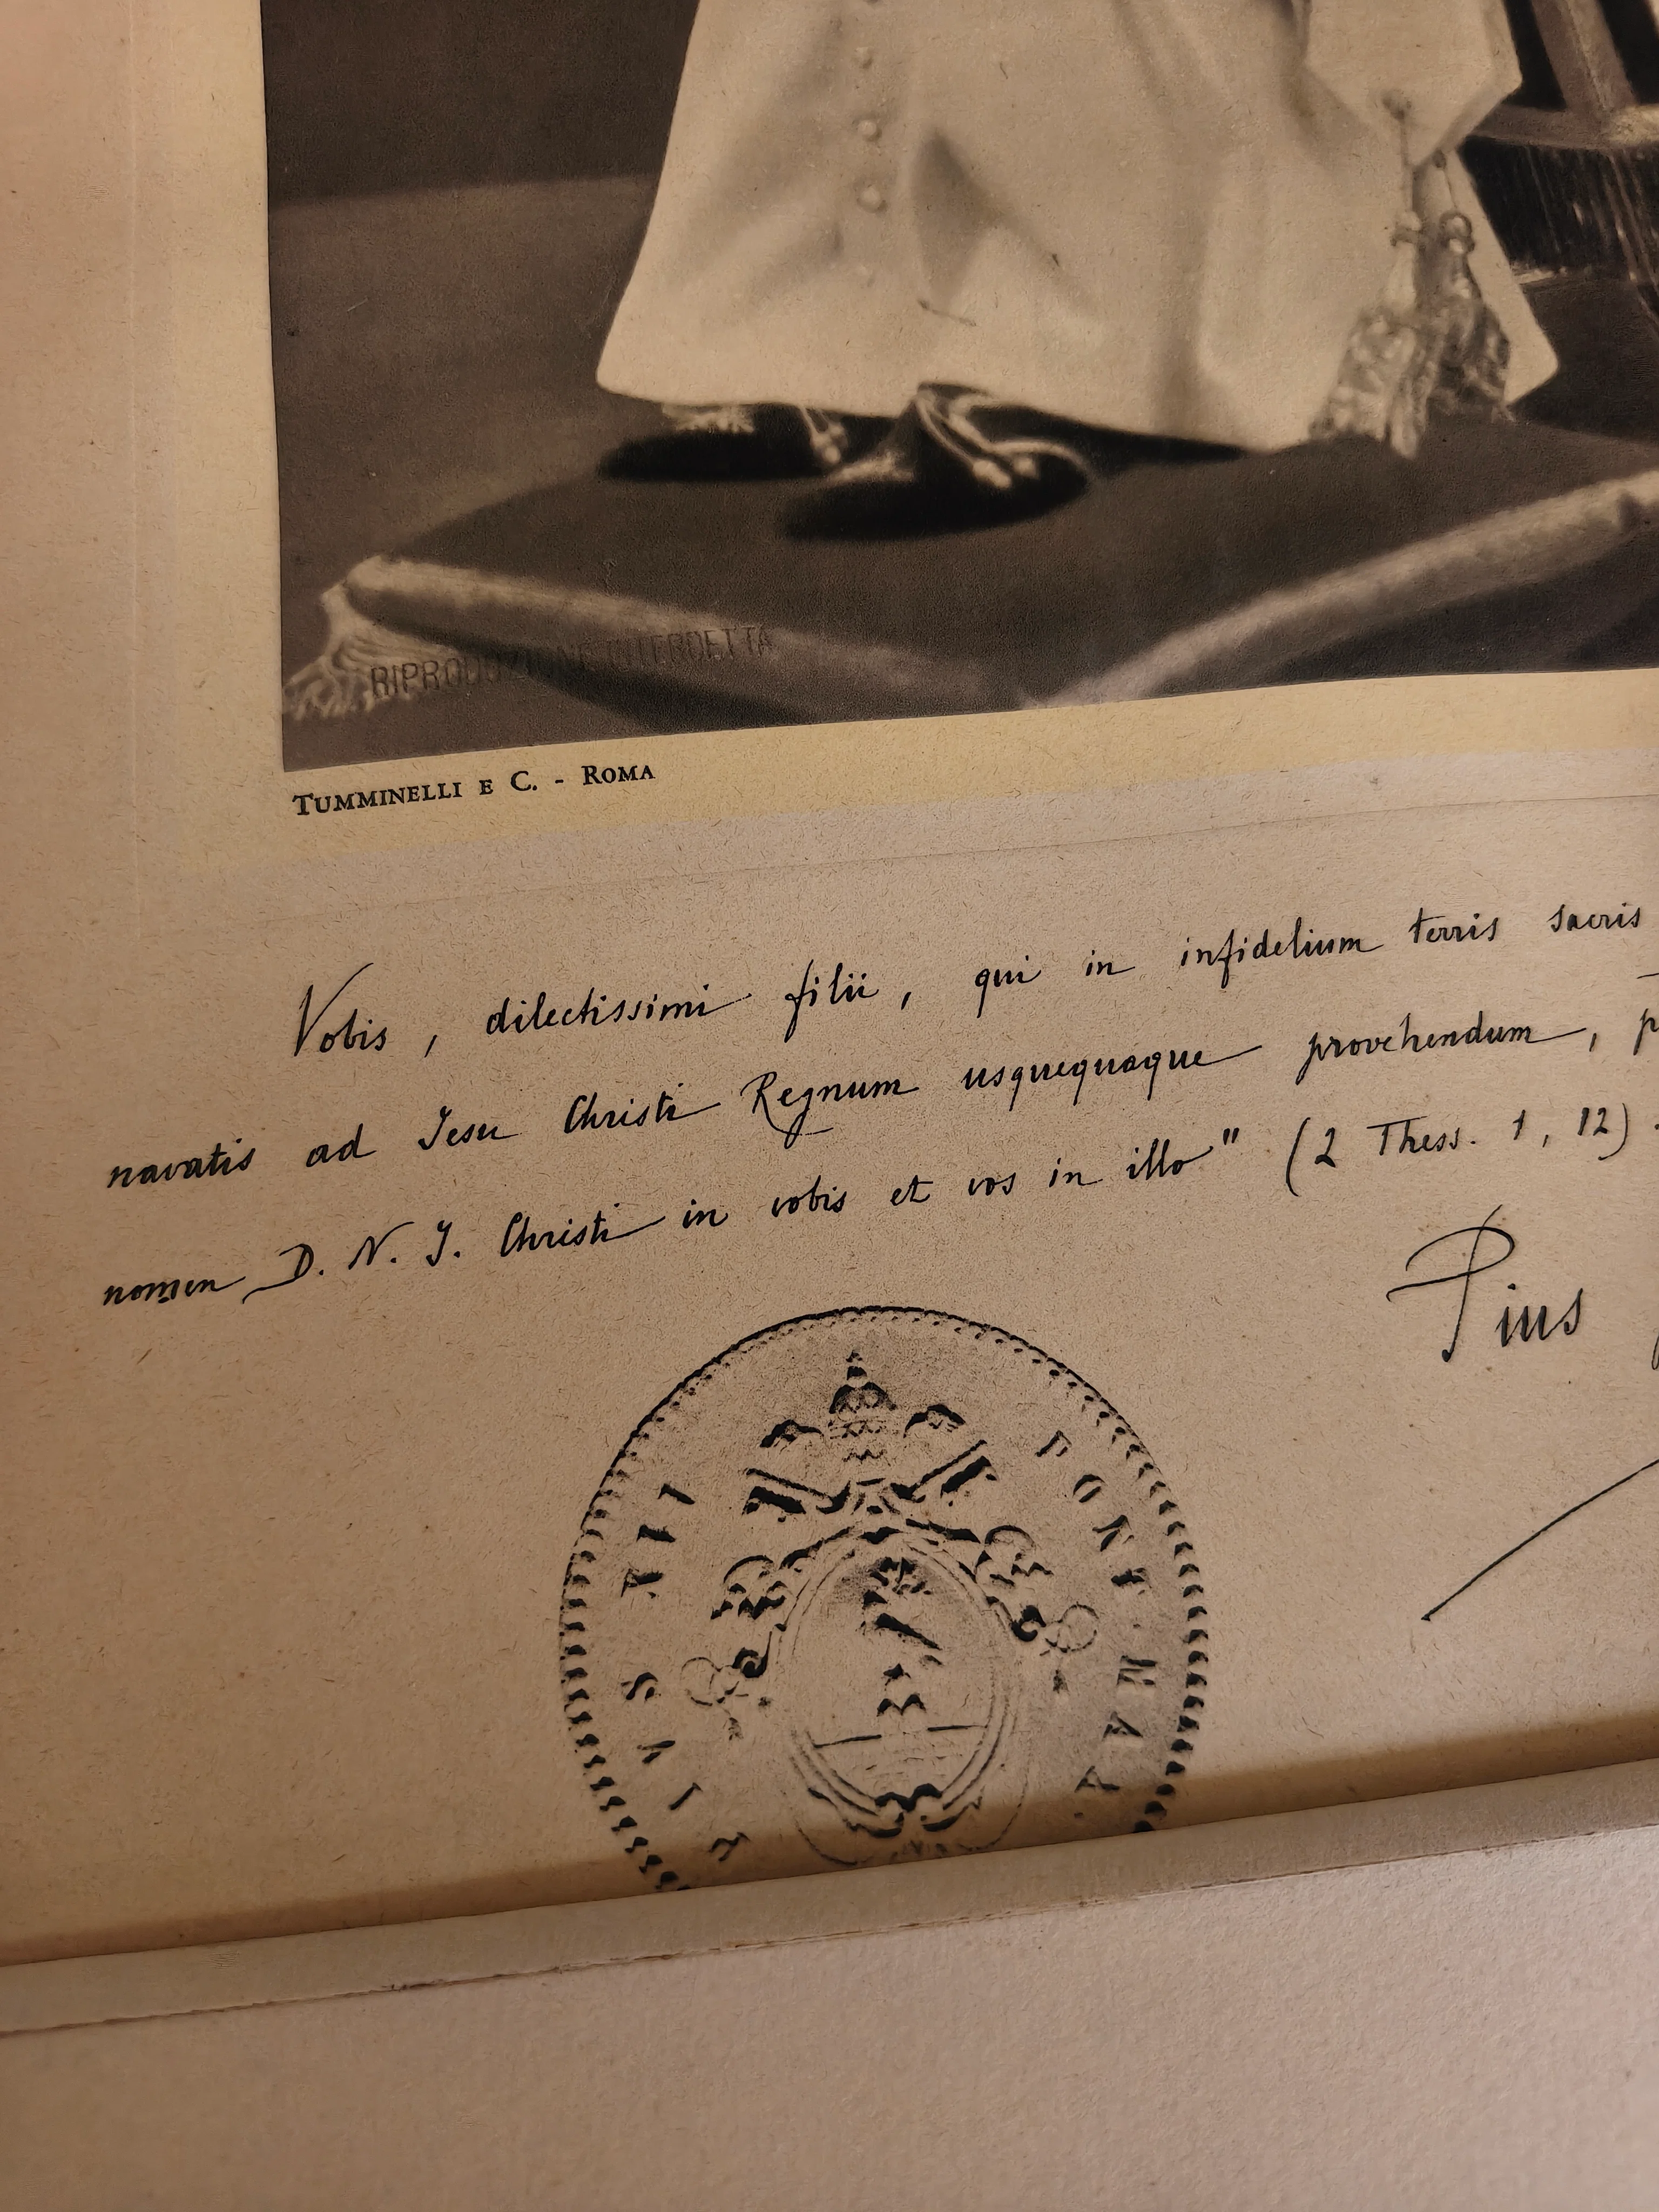 RIPRODUZIONE INTERDETTA
TUMMINELLI E C. - ROMA
Vobis, dilectissimi filii, qui in infidelium terris sacris
navatis ad Jesu Christi Regnum usquequaque provehendum,
nomen D. N. J. Christi in vobis et vos in illo" (2 Thess. 1, 12).
Pius
PIVS XII PONT. MAX.